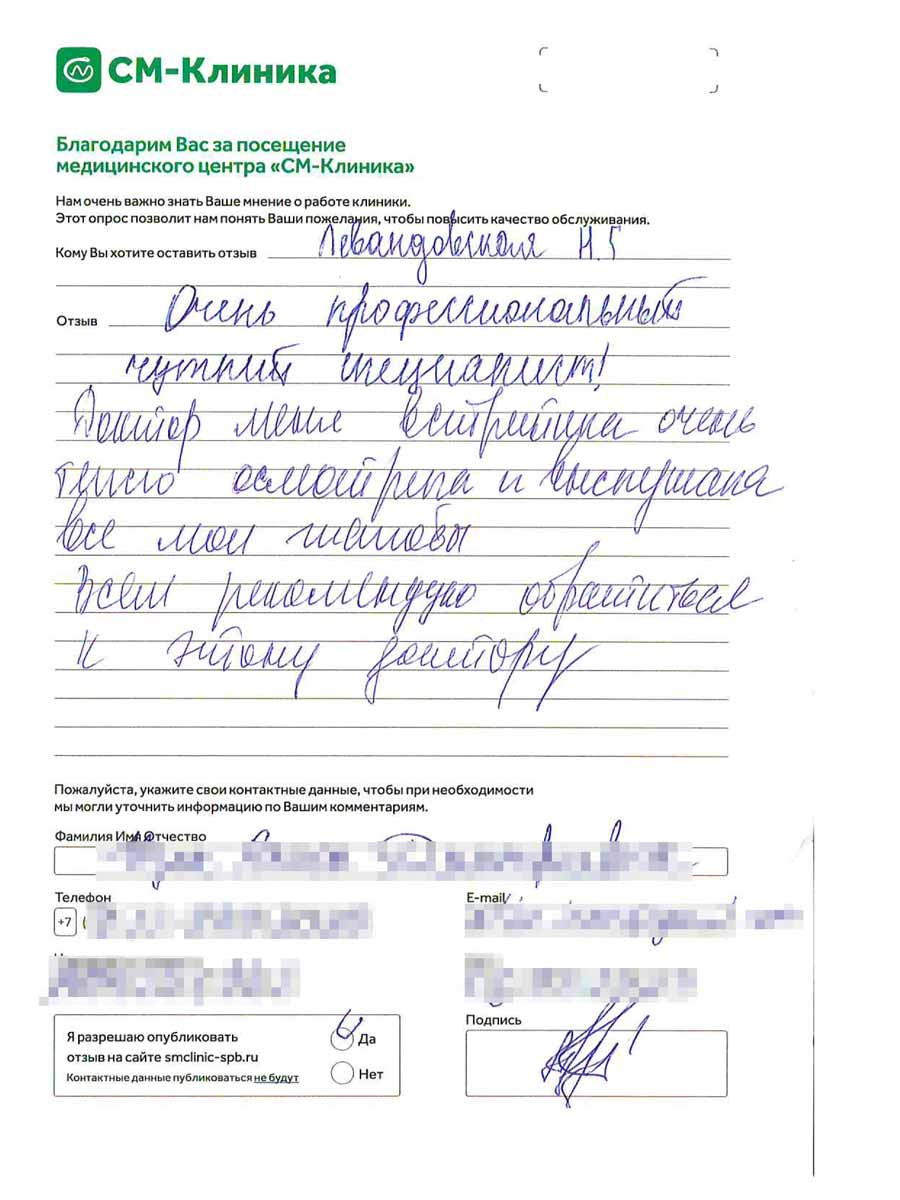 СМ-Клиника
Благодарим Вас за посещение
медицинского центра «СМ-Клиника»
Нам очень важно знать Ваше мнение о работе клиники.
Этот опрос позволит нам понять Ваши пожелания, чтобы повысить качество обслуживания.
Кому Вы хотите оставить отзыв Левандовская Н.Г
Отзыв Очень профессиональный
чуткий специалист!
Доктор меня встретила очень
тепло осмотрела и выслушала
все мои жалобы
Всем рекомендую обратиться
к этому доктору
Пожалуйста, укажите свои контактные данные, чтобы при необходимости
мы могли уточнить информацию по Вашим комментариям.
Фамилия Имя Отчество
Телефон E-mail
+7 (
Подпись
Я разрешаю опубликовать
отзыв на сайте smclinic-spb.ru
Контактные данные публиковаться не будут
Да
Нет